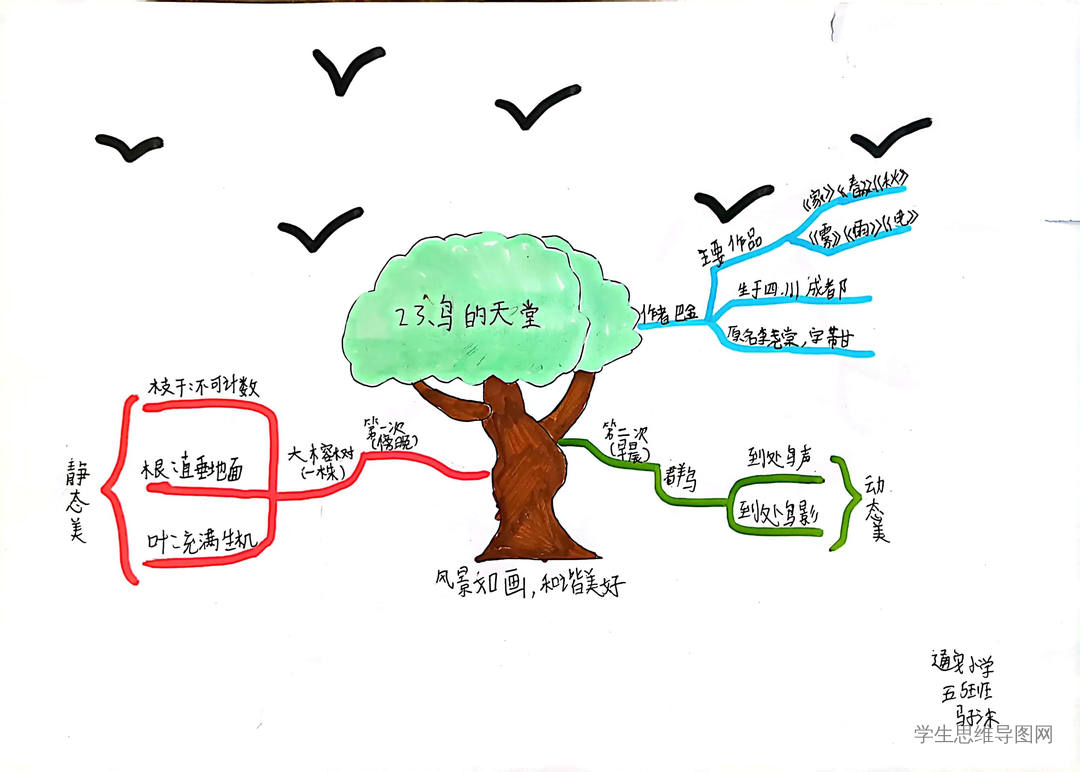 23、鸟的天堂
作者 巴金
主要作品
《家》《春》《秋》
《雾》《雨》《电》
生于四川成都
原名李尧棠,字芾甘
第一次
(傍晚)
大榕树
(一株)
枝干:不可计数
根:直垂地面
叶:充满生机
静态美
第二次
(早晨)
群鸟
到处鸟声
到处鸟影
动态美
风景如画,和谐美好
小学
学生思维导图网